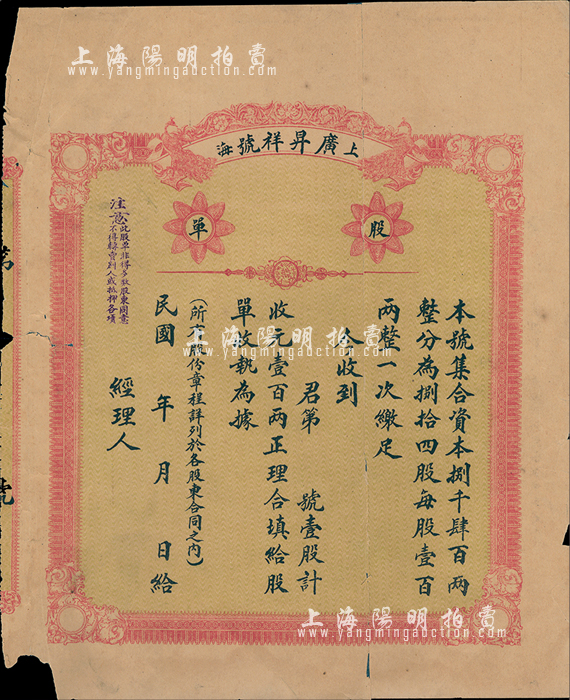 上海陽明拍賣
www.yangmingauction.com
上海廣昇祥號
股單
本號集合資本捌千肆百両
整分為捌拾四股每股壹百
両整一次繳足
今收到
君第 號壹股計
收元壹百両正理合填給股
單收執為據
(所有股份章程詳列於各股東合同之內)
民國 年 月 日給
經理人
注意此股單非得多數股東同意
不得賣別人或抵押各項
第
號
上海陽明拍賣
www.yangmingauction.com
上海陽明拍賣
www.yangmingauction.com